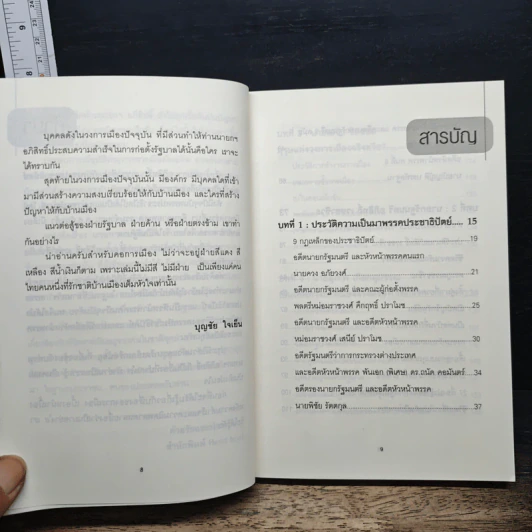 บุคคลดังในวงการเมืองปัจจุบัน ที่มีส่วนทำให้ท่านนายกฯ
อภิสิทธิ์ประสบความสำเร็จในการก่อตั้งรัฐบาลได้นั้นคือใคร เราจะ
ได้ทราบกัน
สุดท้ายในวงการเมืองปัจจุบันนั้น มีองค์กร มีบุคคลใดที่เข้า
มามีส่วนสร้างความสงบเรียบร้อยให้กับบ้านเมือง และใครที่สร้าง
ปัญหาให้กับบ้านเมือง
แนวต่อสู้ของฝ่ายรัฐบาล ฝ่ายค้าน หรือฝ่ายตรงข้าม เขาทำ
กันอย่างไร
น่าอ่านครับสำหรับคอการเมือง ไม่ว่าจะอยู่ฝ่ายสีแดง สี
เหลือง สีน้ำเงินก็ตาม เพราะเล่มนี้ไม่มีสี ไม่มีฝ่าย เป็นเพียงแค่คน
ไทยคนหนึ่งที่รักชาติบ้านเมืองเต็มหัวใจเท่านั้น
บุญชัย ใจเย็น
8
สารบัญ
บทที่ 1 : ประวัติความเป็นมาพรรคประชาธิปัตย์..... 15
9 กฎเหล็กของประชาธิปัตย์ 19
อดีตนายกรัฐมนตรี และหัวหน้าพรรคคนแรก
นายควง อภัยวงศ์ 21
อดีตนายกรัฐมนตรี และคณะผู้ก่อตั้งพรรค
พลตรีหม่อมราชวงศ์ คึกฤทธิ์ ปราโมช 25
อดีตนายกรัฐมนตรี และอดีตหัวหน้าพรรค
หม่อมราชวงศ์ เสนีย์ ปราโมช 30
อดีตรัฐมนตรีว่าการกระทรวงต่างประเทศ
และอดีตหัวหน้าพรรค พันเอก (พิเศษ) ดร.ถนัด คอมันตร์ 34
อดีตรองนายกรัฐมนตรี และอดีตหัวหน้าพรรค
นายพิชัย รัตตกุล 37
9